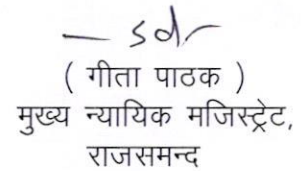 — sd —
( गीता पाठक )
मुख्य न्यायिक मजिस्ट्रेट,
राजसमन्द